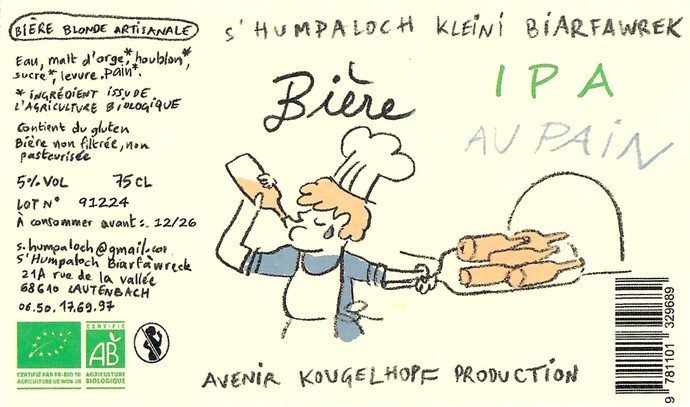 BIÈRE BLONDE ARTISANALE
Eau, malt d'orge*, houblon*,
sucre*, levure, pain*.
* INGRÉDIENT ISSU DE
L'AGRICULTURE BIOLOGIQUE
Contient du gluten
Bière non filtrée, non
pasteurisée
5% VOL 75 CL
LOT N° 91224
À consommer avant : 12/26
s.humpaloch@gmail.com
S'Humpaloch Biarfàwreck
21A rue de la vallée
68610 LAUTENBACH
06.50.17.69.97
CERTIFIÉ PAR FR-BIO 10
AGRICULTURE UE/NON UE
CERTIFIÉ
AB
AGRICULTURE
BIOLOGIQUE
S'HUMPALOCH KLEINI BIARFAWREK
Bière
IPA
AU PAIN
AVENIR KOUGELHOPF PRODUCTION
9 781101 329689